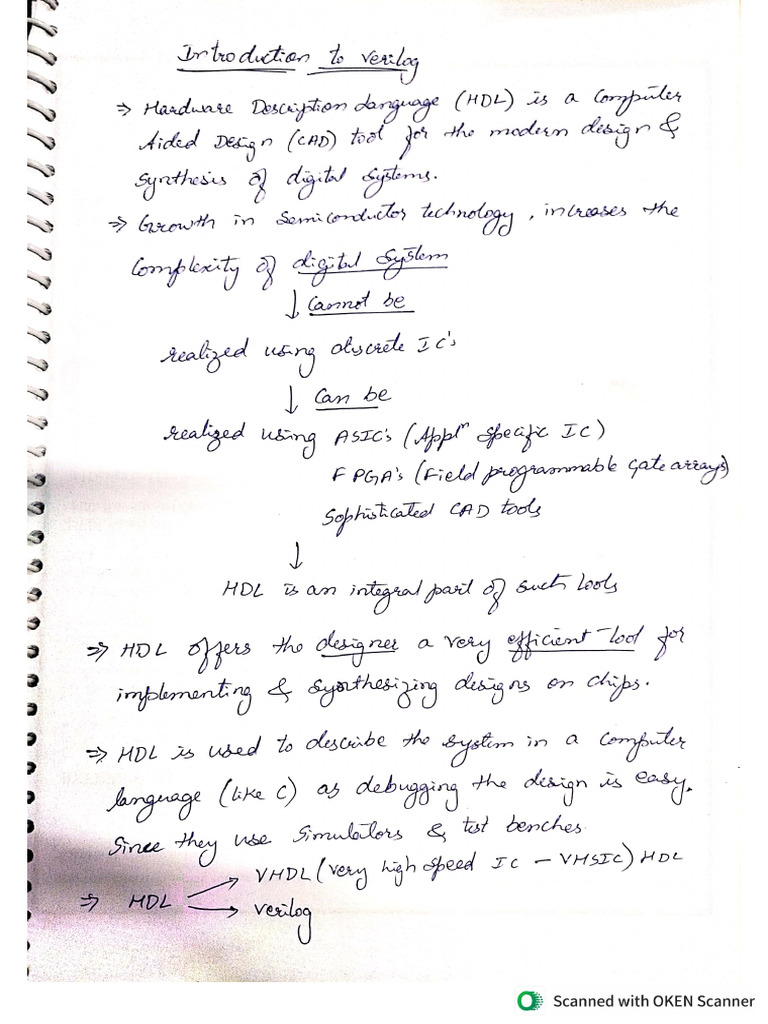 Introduction to Verilog
⇒ Hardware Description Language (HDL) is a Computer
Aided Design (CAD) tool for the modern design &
Synthesis of digital Systems.
⇒ Growth in Semiconductor technology, increases the
Complexity of digital System
↓ Cannot be
realized using discrete IC's
↓ Can be
realized using ASIC's (Appln Specific IC)
FPGA's (Field programmable Gate arrays)
Sophisticated CAD tools
↓
HDL is an integral part of such tools
⇒ HDL offers the designer a very efficient tool for
implementing & synthesizing designs on chips.
⇒ HDL is used to describe the system in a Computer
language (like C) as debugging the design is easy.
Since they use Simulators & test benches.
→ VHDL (very high speed IC - VHSIC) HDL
⇒ HDL
→ Verilog
Scanned with OKEN Scanner